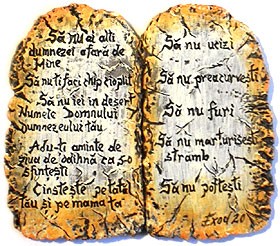 Să nu ai alti
dumnezei afară de
Mine
Să nu ti faci chip cioplit
Să nu iei in desert
Numele Domnului
Dumnezeului tău
Adu-ti aminte de
ziua de odihnă ca s-o
sfintesti
Cinsteste pe tatăl
tău si pe mama ta
Să nu ucizi
Să nu preacurvesti
Să nu furi
Să nu marturisesti
stramb
Să nu poftesti
Exod 20